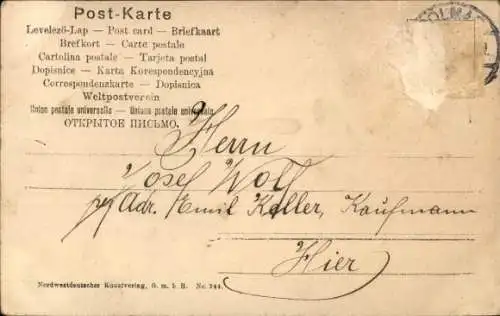 Post-Karte
Levelező-Lap — Post card — Briefkaart
Brefkort — Carte postale
Cartolina postale — Tarjeta postal
Dopisnice — Karta Korespondencyjna
Correspondenzkarte — Dopisnica
Weltpostverein
Union postale universelle — Unione postale universale
ОТКРЫТОЕ ПИСЬМО.
COLMAR
Herrn
Josef Wolf
p/Adr. Emil Keller, Kaufmann
Hier
Nordwestdeutscher Kunstverlag, G. m. b. H. No. 244.